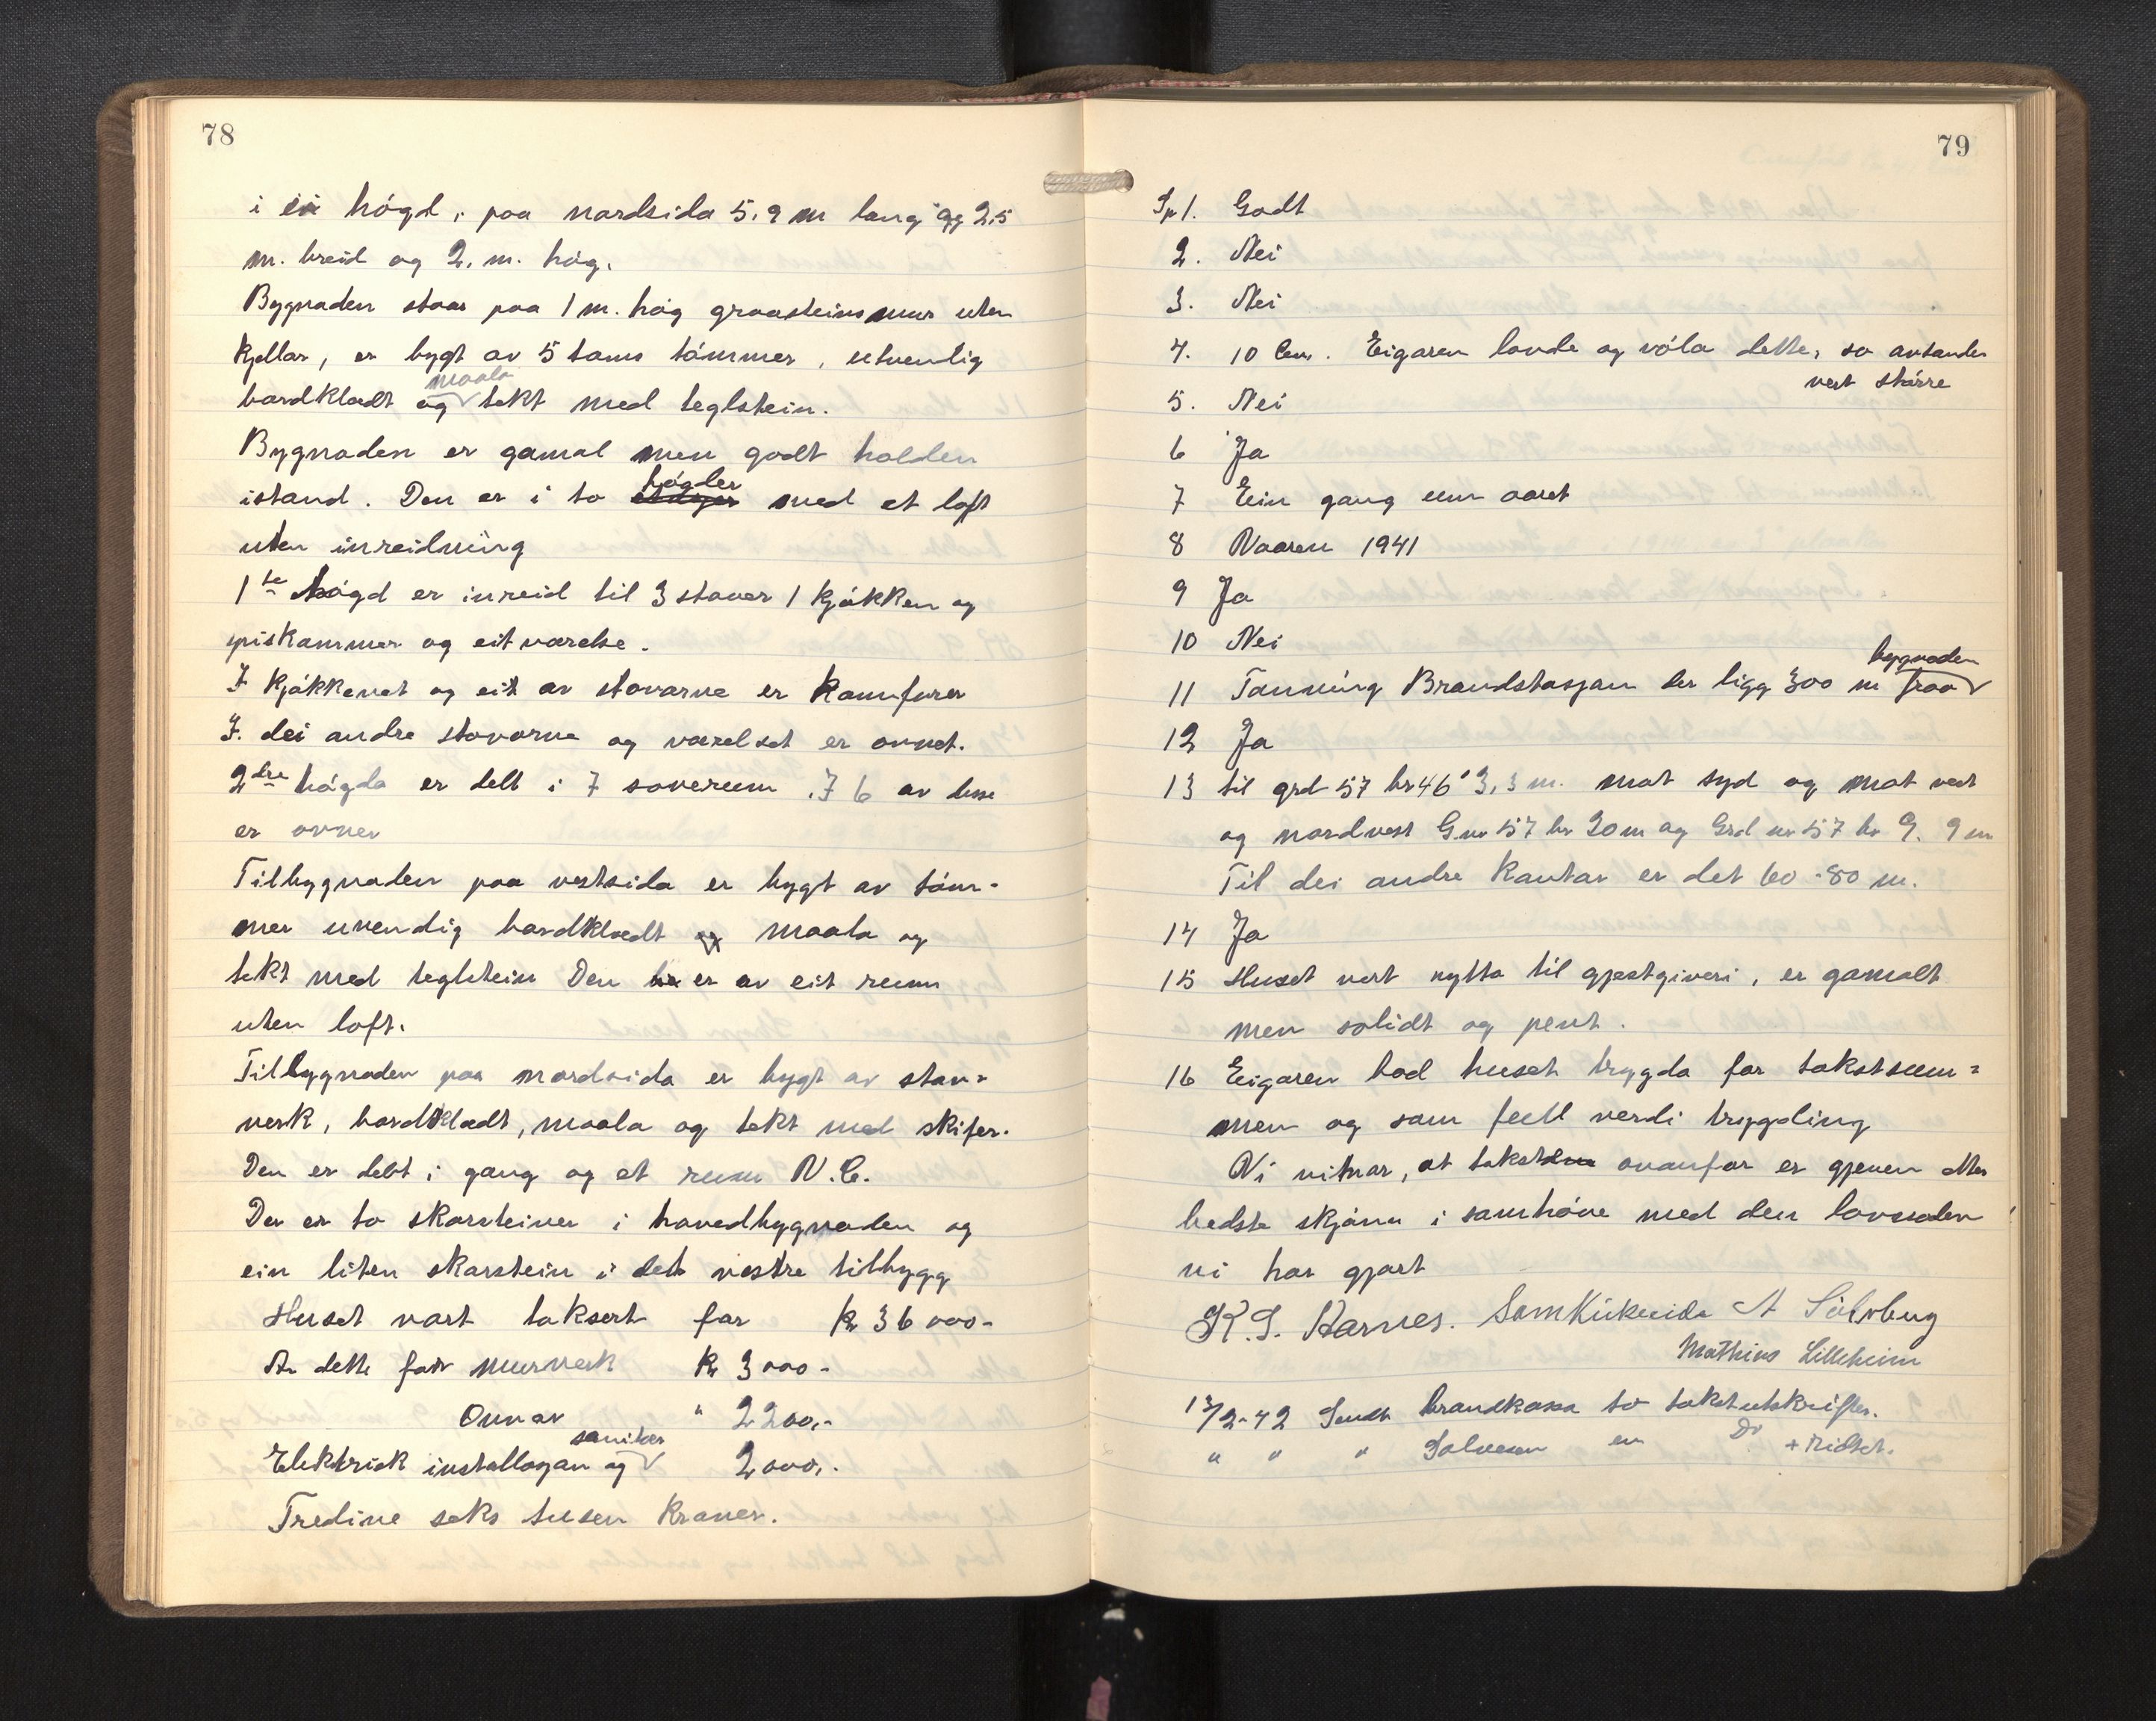 78
i ei högd, paa nordsida 5,9 m lang og 2,5
m. breid og 2. m. høg.
Bygnaden staar paa 1 m. høg graasteins mur uten
kjellar, er bygt av 5 toms tömmer, utvendig
maala
bordklædt og tekt med teglstein.
Bygnaden er gamal men godt holden
högder
istand. Den er i to etager med et loft
uten inreidning
1ste högd er inreid til 3 stover 1 kjökken og
spiskammer og eit værelse.
I kjökkenet og eit av stovarne er komfurer
I. dei andre stovorne og værelset er ovnet.
2dre högda er delt i 7 soverum. I 6 av desse
er ovner
Tilbygnaden paa vestsida er bygt av töm-
mer uvendig bordklædt og maala og
tekt med teglstein Den er av eit rum
uten loft.
Tilbygnaden paa nordsida er bygt av stav-
verk, bordklædt, maala og tekt med skifer.
Den er delt i gang og et rum V.C.
Der er to skorsteiner i hovedbygnaden og
ein liten skorstein i det vestre tilbygg
Huset vart taksert for kr 36000-
Av dette for murverk kr 3000-
Ovnar " 2200,-
sanitær
Elektrisk installasjon og 2000,-
Tredive seks tusen kroner.
79
Sp 1. Godt
2. Nei
3. Nei
4. 10 Cm. Eigaren lovde og völa dette, so avstanden
vert större
5. Nei
6 Ja
7 Ein gang um aaret
8 Vaaren 1941
9 Ja
10 Nei
bygnaden
11 Tanning Brandstasjon der ligg 300 m fraa
12 Ja
13 til grd 57 br 46 3,3 m. mot syd og mot vest
og nordvest G.nr 57 br 20 m og Grd nr 57 br 9. 9 m
Til dei andre kantar er det 60-80 m.
14 Ja
15 Huset vert nytta til gjestgiveri, er gamalt
men solidt og pent.
16 Eigaren bad huset trygda for takstsum=
men og som full verdi trygding
Vi vitnar, at taksten ovanfor er gjeven etter
bedste skjönn i samhöve med den lovnaden
vi har gjort
K.S. Karnes. A Sölvberg
Mathias Lilleheim
13/2-42 Sendt brandkassa to takstutskrifter.
" " " Solvesen en Do + Ridset.